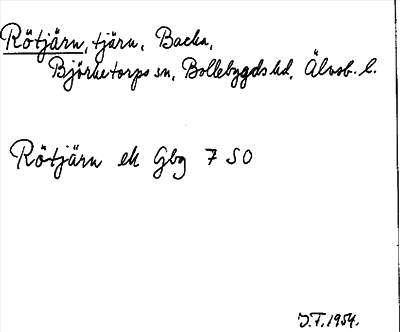 Rötjärn, tjärn, Backa,
Björketorps sn, Bollebygds hd, Älvsb. l.
Rötjärn ek Gbg 7 SO
J.F. 1954.